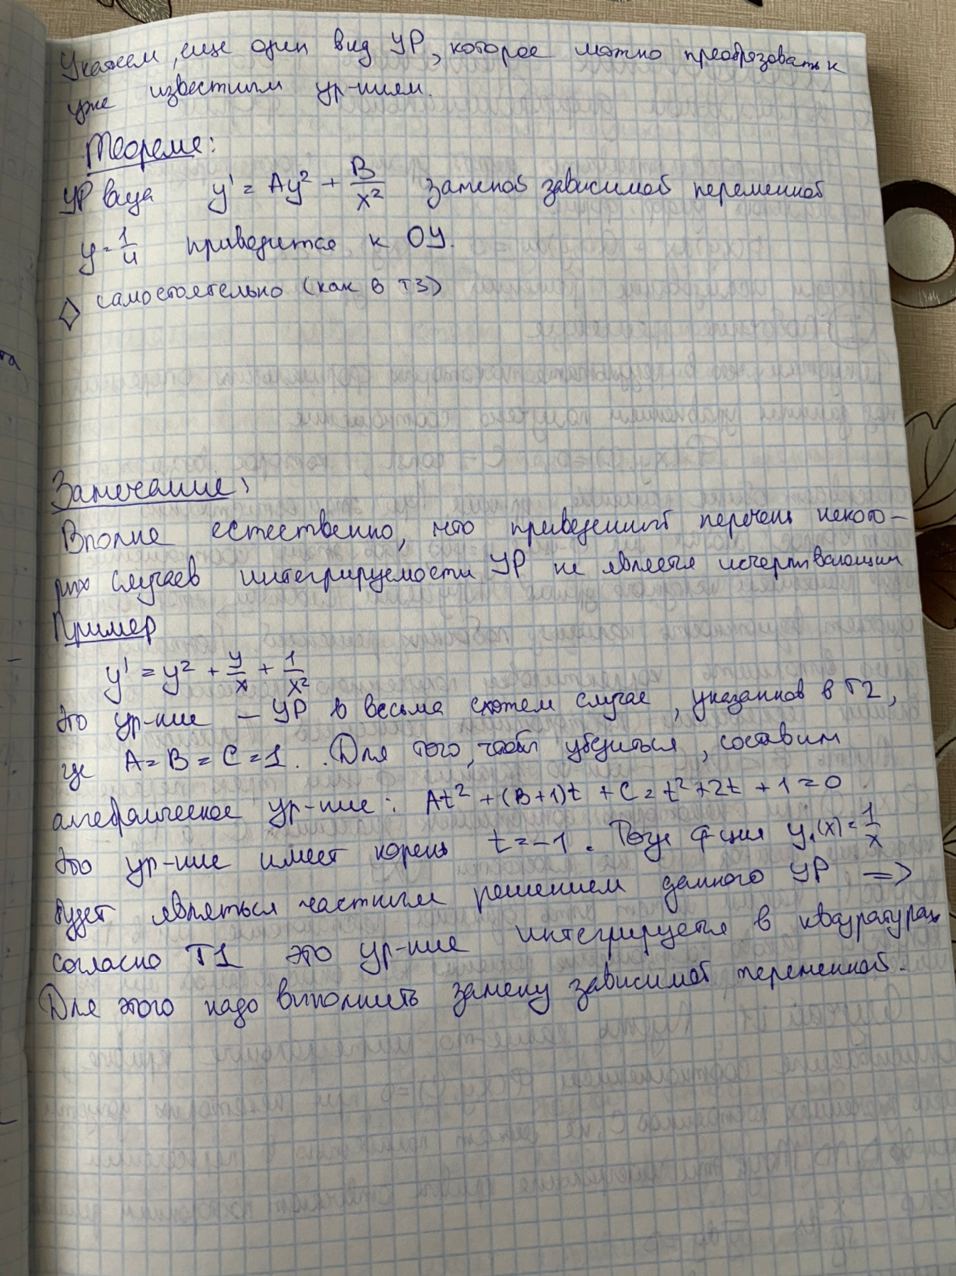 Укажем, еще один вид УР, которое можно преобразовать к
уже известным ур-ниям.
Теорема:
УР вида y' = Ay² + B/x² заменой зависимой переменной
y = 1/u приводится к ОУ.
◇ самостоятельно (как в Т3)
Замечание:
Вполне естественно, что приведенный перечень некото-
рых случаев интегрируемости УР не является исчерпывающим
Пример
y' = y² + y/x + 1/x²
Это ур-ние – УР в весьма схожем случае, указанном в Т2,
где A = B = C = 1. Для того, чтобы убедиться, составим
алгебраическое ур-ние: At² + (B+1)t + C = t² + 2t + 1 = 0
Это ур-ние имеет корень t = -1. Тогда ф-ция y₁(x) = 1/x
будет являться частным решением данного УР ⇒
согласно Т1 это ур-ние интегрируется в квадратурах
Для этого надо выполнить замену зависимой переменной.